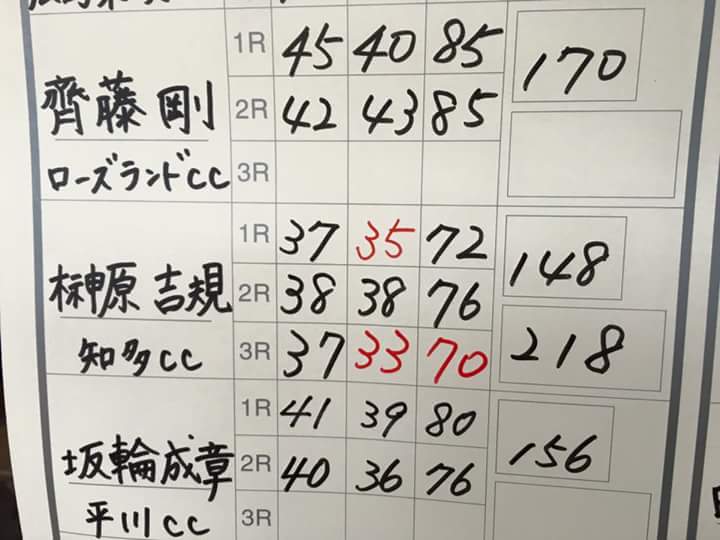 1R 45 40 85 170
齊藤 剛 2R 42 43 85
ローズランドCC 3R
1R 37 35 72 148
榊原 吉規 2R 38 38 76
知多CC 3R 37 33 70 218
1R 41 39 80 156
坂輪成章 2R 40 36 76
平川CC 3R